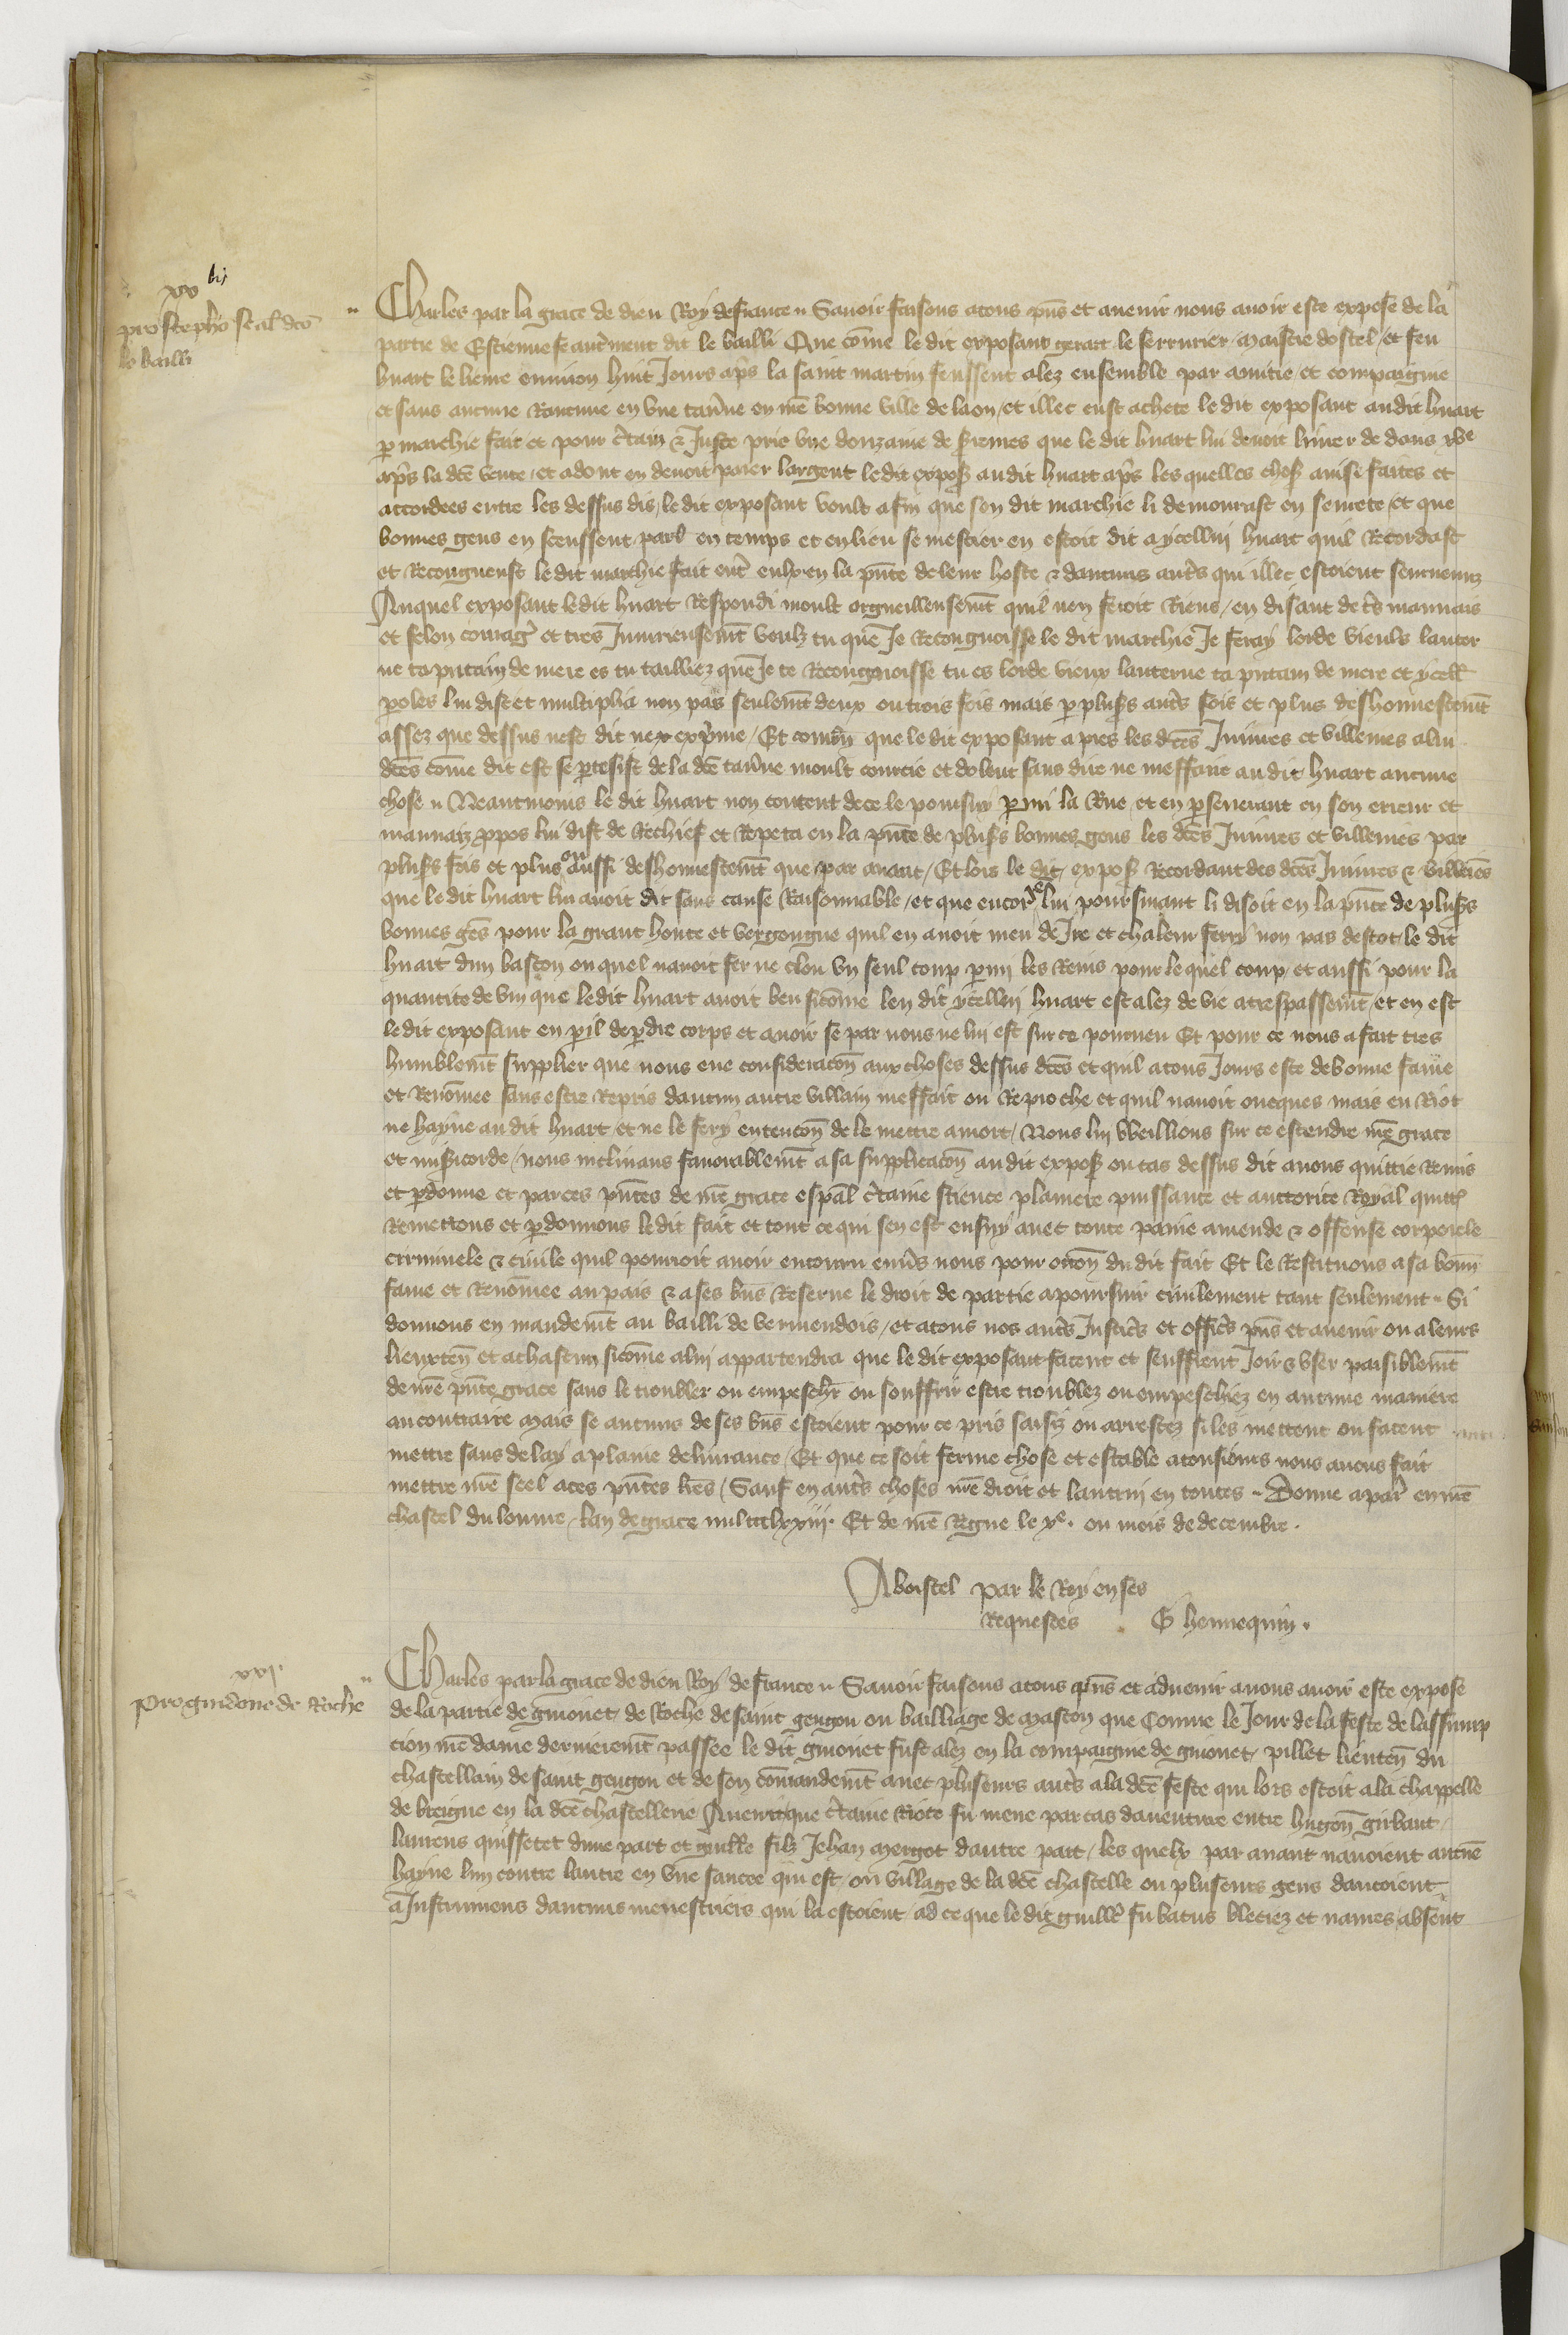 bis
xv
pro stepho se al dco
le bailli
Charles par la grace de dieu Roy de france Savoir faisons a tous pns et avenir nous avoir este expose de la
partie de Estienne se autrment dit le bailli Que come le dit exposant gerart le serrurier maistre dostel et feu
huart le lieme environ huit Jours aps la saint martin feussent alez ensemble par amitie et compaignie
et sans aucune Rancune en une tavne en nre bonne ville de laon et illec eust achete le dit exposant audit huart
p marchie fait et pour ctain & Juste pris une douzaine de que le dit huart lui devoit livrer dedans
aps la dce vente et adont en devoit paier largent le dit expos audit huart aps les quelles chos ainsi faites et
accordees entre les dessus dis le dit exposant voult afin que son dit marchie li demourast en seurete et que
bonnes gens en sceussent parl en temps et en lieu se mestier en estoit dit a ycellui huart quil Recordast
et Recongneust le dit marchie fait entr eulx en la pnce de leur hoste & daucuns autrs qui illec estoient seurvenuz
Auquel exposant le dit huart Respondi moult orgueilleusemt quil nen feroit Riens en disant de ts mauvais
et felon couragr et tres Injurieusemt veulx tu que Je Recongnoisse le dit marchie Je feray lorde vieulx lanter
ne ta putain de mere es tu tailliez que Je te Recongnoisse tu es lorde vieux lanterne ta putain de mere et ycell
poles lui dist et multiplia non pas seulemt deux ou trois fois mais p plusrs autrs fois et plus deshonnestemt
assez que dessus nest dit ne exprime Et combn que le dit exposant apres les dces Injures et villenies a lui
dces come dit est se ptesist de la dce tavne moult courcie et dolent sans dire ne meffaire au dit huart aucune
chose Neantmoins le dit huart non content de ce le poursuy pmi la Rue et en pseverant en son erreur et
mauvaiz ppos lui dist de Rechief et Repeta en la pnce de plusrs bonnes gens les dces Injures et villenies par
plusrs fois et plus aussi deshonnestemt que par avant Et lors le dit expos Recordant des dces Injures & villenies
que le dit huart lui avoit dit sans cause Raisonnable et que encore lui poursuiant li disoit en la pnce de plusrs
bonnes gens pour la grant honte et vergongne quil en avoit meu de Ire et chaleur fery non pas destoc le dit
huart dun baston ouquel navoit fer ne clou un seul coup pmi les Reins pour lequel coup et aussi pour la
quantite de vin que le dit huart avoit beu sicome len dit ycellui huart est alez de vie a trespassemt et en est
le dit exposant en pil de pdre corps et avoir se par nous ne lui est sur ce pourveu Et pour ce nous a fait tres
humblemt supplier que nous eue consideracon aux choses dessus dces et quil a tous Jours este de bonne fame
et Renomee sans estre Repris daucun autre villain meffait ou Reproche et quil navoit oncques mais eu Riot
ne hayne au dit huart et ne le fery entencon de le mettre a mort Nous lui Weillions sur ce estendre nre grace
et misicorde nous inclinans favorablemt a sa supplicacon au dit expos ou cas dessus dit avons quittie Remis
et pdonne et par ces pntes de nre grace espal ctaine science plainiere puissance et auctorite Royal quitt
Remettons et pdonnons le dit fait et tout ce qui sen est ensuy avec toute paine amende & offense corporele
criminele & civile quil pourroit avoir encouru envs nous pour occon du dit fait Et le Restituons a sa bonn
fame et Renomee au pais & a ses bns Reserve le droit de partie a poursuir civilement tant seulement Si
donnons en mandemt au bailli de vermendois et a tous nos autrs Justicrs et officrs pns et avenir ou a leurs
lieuxten et a chascun sicome a lui appartendra que le dit exposant facent et seuffrent Joir & user paisiblemt
de nre pnte grace sans le troubler ou empeschr ou souffrir estre troublez ou empeschiez en aucune maniere
au contraire Mais se aucuns de ses bns estoient pour ce pris saisiz ou arrestez si les mettent ou facent
mettre sans delay a plaine delivrance Et que ce soit ferme chose et estable a tousiours nous avons fait
mettre nre seel a ces pntes lres Sauf en autrs choses nre droit et lautrui en toutes Donne a par en nre
chastel du louvre lan de grace mil ccclxxiij Et de nre Regne le xe. ou mois de decembre.
Aboistel par le Roy en ses
Requestes G hennequin.
xvj.
Pro guidone de Roche
Charles par la grace de dieu Roy de france Savoir faisons a tous pns et advenir a nous avoir este expose
de la partie de guionet de Roche de saint gengon ou bailliage de Mascon que Comme le Jour de la feste de lassump
cion nre dame derrieremt passee le dit guionet fust alez en la compaignie de guionet pillet lieuten du
chastellain de saint gengon et de son comandemt avec pluseurs autrs a la dce feste qui lors estoit a la chappelle
de breigne en la dce chastellerie Avenit que ctaine Riote fu mene par cas daventure entre hugon girbaut
laurens quissetet dune part et guille filz Jehan mergot dautre part les quelx par avant navoient aucune
hayne lun contre lautre en une sancee qui est ou village de la dce chastelle ou pluseurs gens dancoient
a Instrumens daucuns menestriers qui la estoient ad ce que le dit guille fu batus bleciez et navres absent